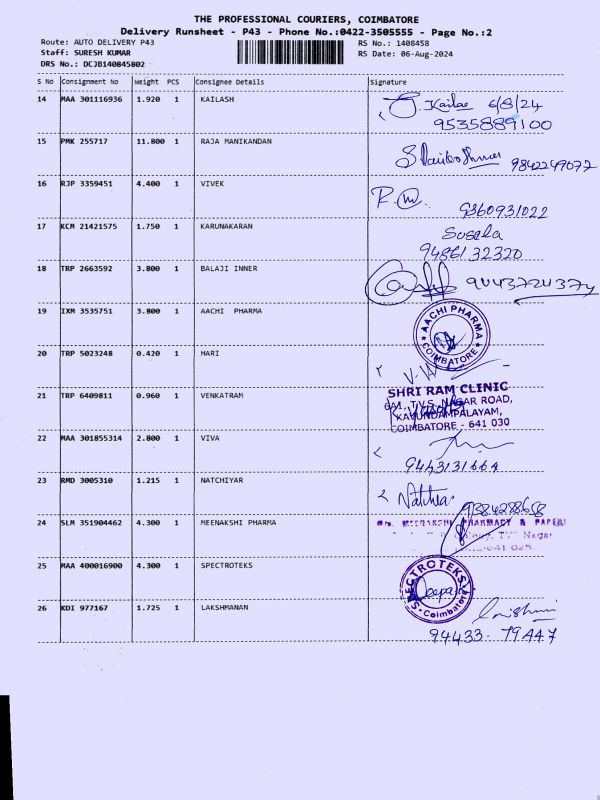 THE PROFESSIONAL COURIERS, COIMBATORE
Delivery Runsheet - P43 - Phone No.:0422-3505555 - Page No.:2
Route: AUTO DELIVERY P43 RS No.: 1408458
Staff: SURESH KUMAR RS Date: 06-Aug-2024
DRS No.: DCJB140845802
S No Consignment No Weight PCS Consignee Details Signature
14 MAA 301116936 1.920 1 KAILASH Kailas 6/8/24
9535889100
15 PMK 255717 11.800 1 RAJA MANIKANDAN 9842249077
16 RJP 3359451 4.400 1 VIVEK
9360931022
17 KCM 21421575 1.750 1 KARUNAKARAN Susela
9486132320
18 TRP 2663592 3.800 1 BALAJI INNER
19 IXM 3535751 3.800 1 AACHI PHARMA AACHI PHARMA COIMBATORE
20 TRP 5023248 0.420 1 HARI
SHRI RAM CLINIC
21 TRP 6409811 0.960 1 VENKATRAM 6A1, T.V.S. NAGAR ROAD,
KAVUNDAMPALAYAM,
COIMBATORE - 641 030
22 MAA 301855314 2.800 1 VIVA
9443131664
23 RMD 3005310 1.215 1 NATCHIYAR 9384288658
24 SLM 351904462 4.300 1 MEENAKSHI PHARMA MEENAKSHI PHARMACY & PAPERS
25 MAA 400016900 4.300 1 SPECTROTEKS SPECTROTEKS Coimbatore
Deepa
26 KDI 977167 1.725 1 LAKSHMANAN
94433 79447